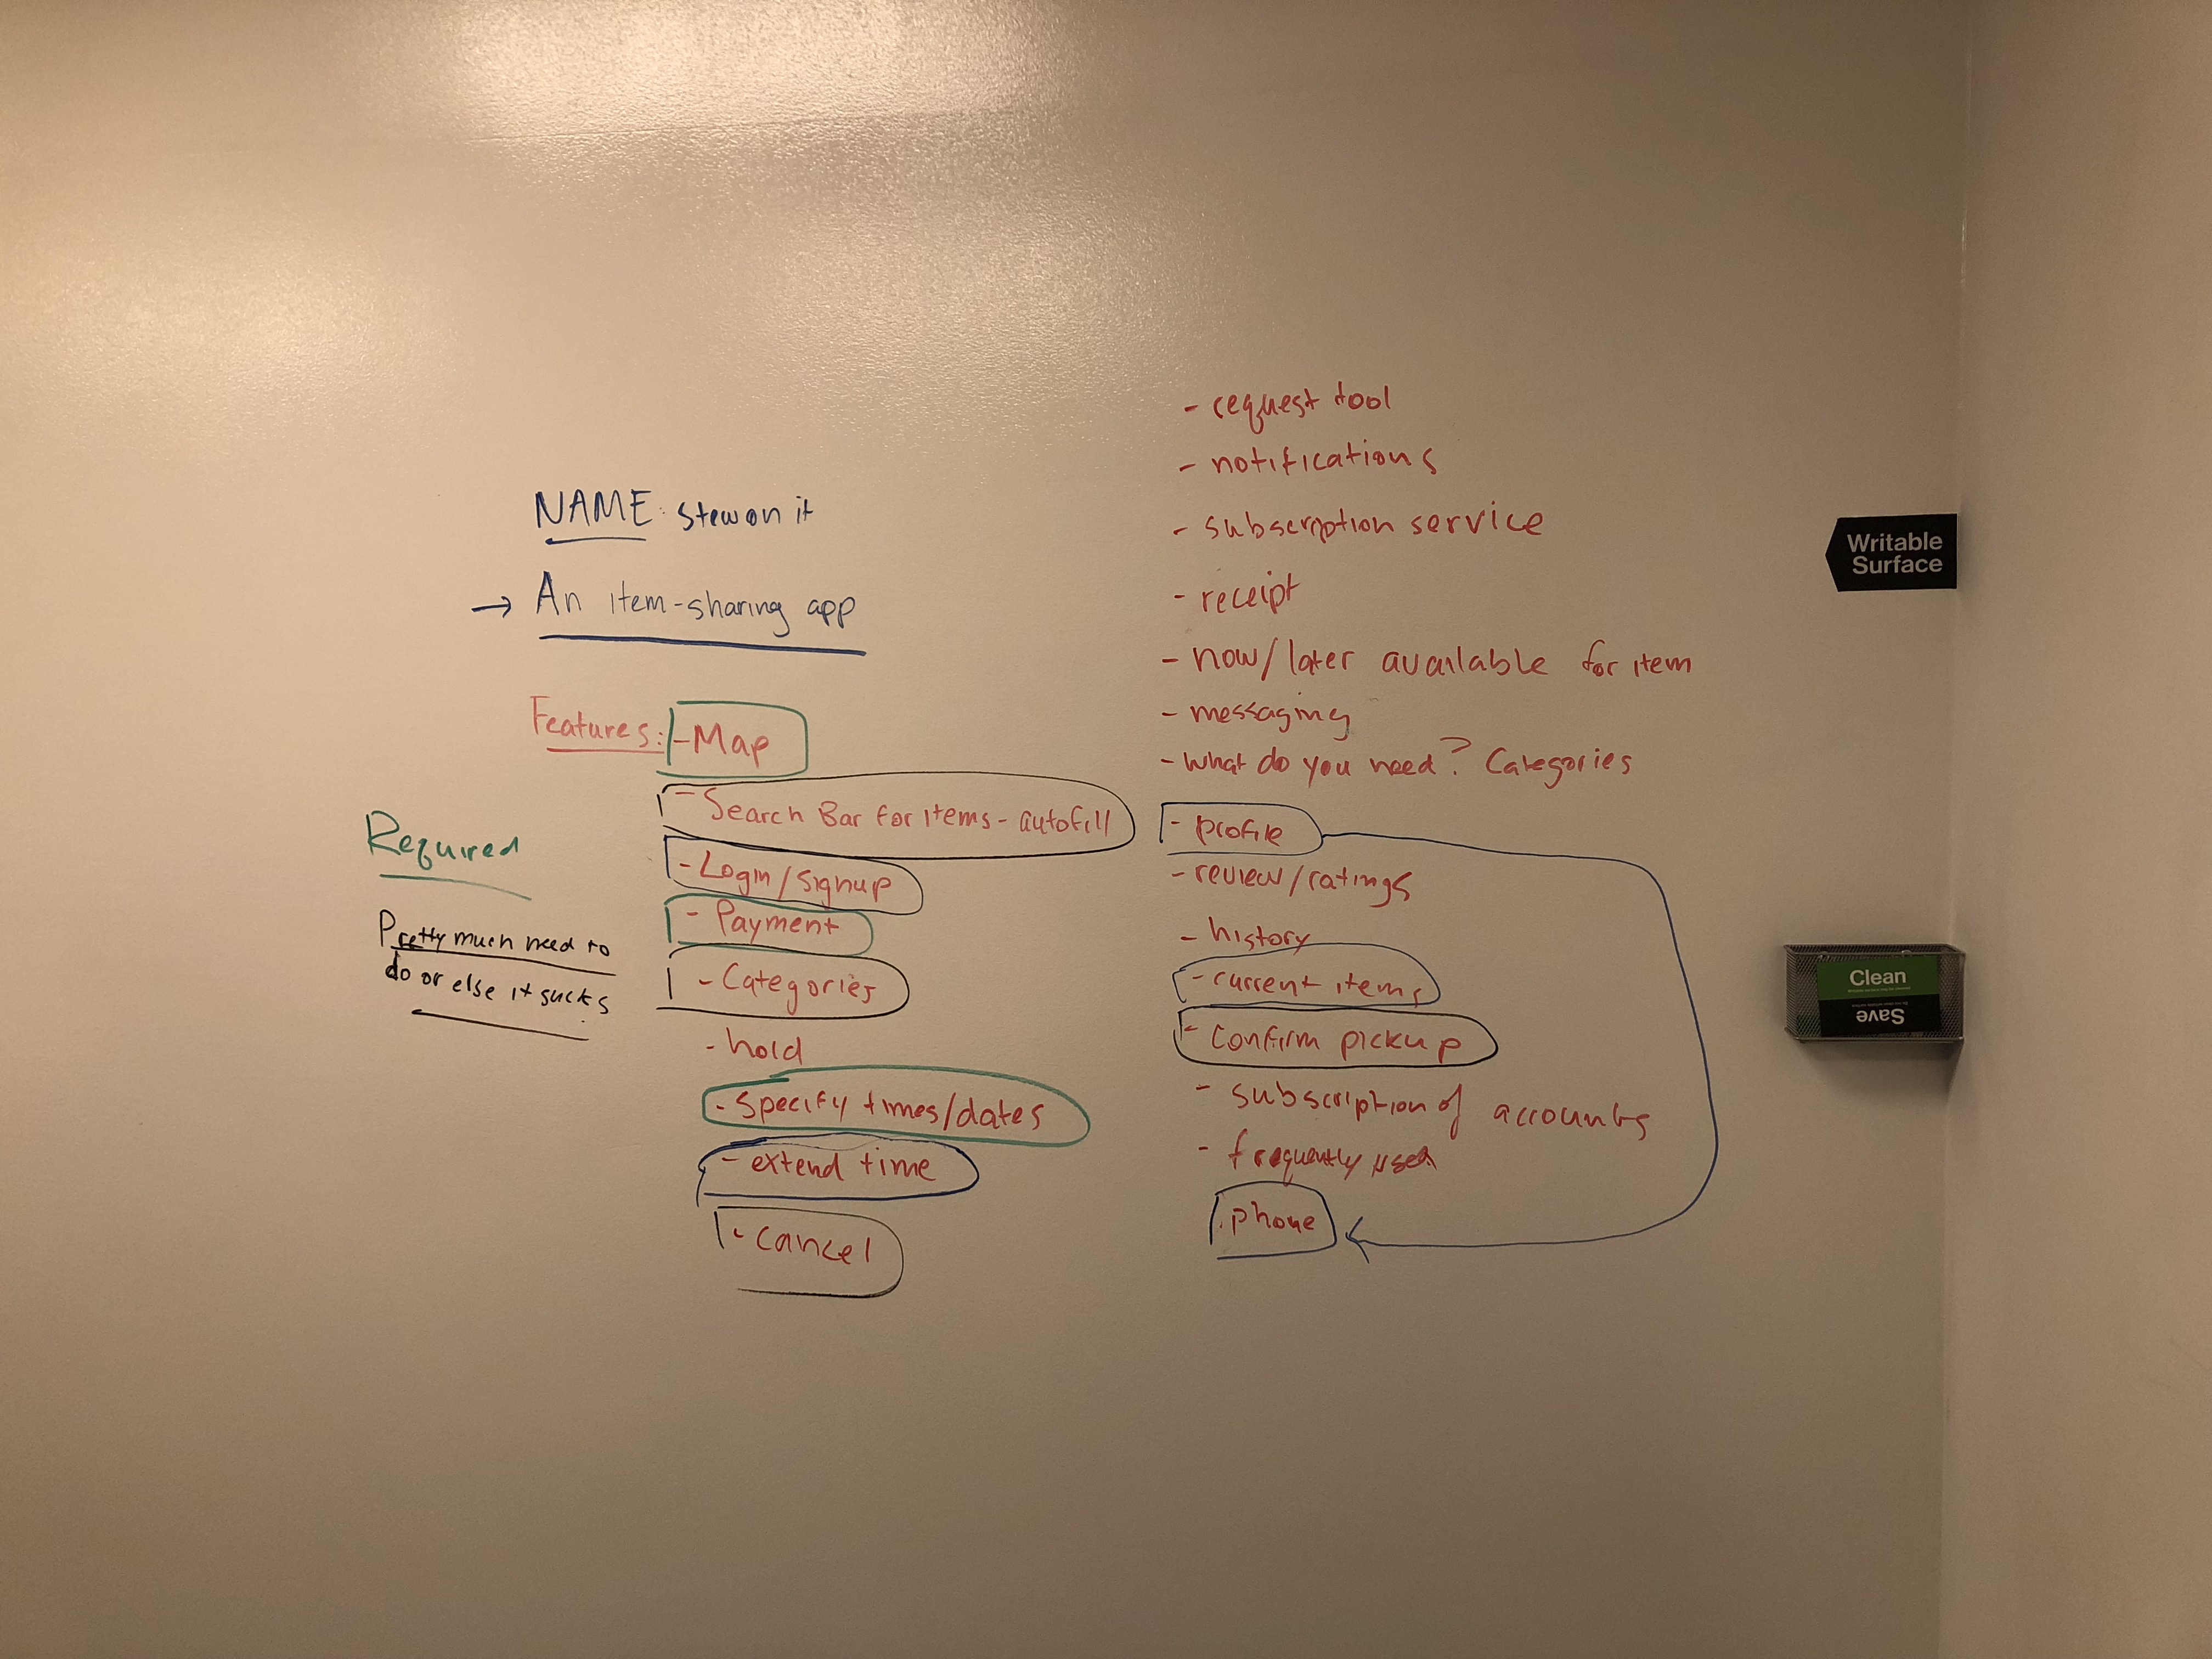 NAME: stewon it
→ An item-sharing app
Features: - Map
- Search Bar for items - autofill
- Login/signup
- Payment
- Categories
- hold
- specify times/dates
- extend time
- cancel
Required
Pretty much need to
do or else it sucks
- request tool
- notifications
- subscription service
- receipt
- now/later available for item
- messaging
- what do you need? Categories
- profile
- review/ratings
- history
- current items
- confirm pickup
- subscription of accounts
- frequently used
- phone
Writable
Surface
Clean
Save